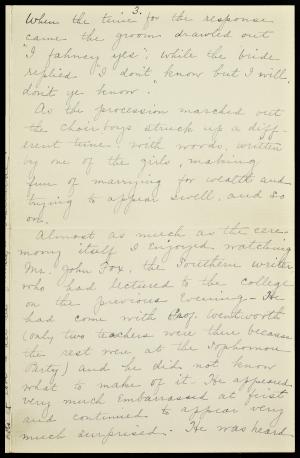 3.
When the time for the response
came the groom drawled out
"I fahncy yes"; while the bride
replied "I don't know but I will,
don't ye know".
As the procession marched out
the choir boys struck up a diff-
erent tune, with words, written
by one of the girls, making
fun of marrying for wealth and
trying to appear swell, and so
on.
Almost as much as the cere-
mony itself I enjoyed watching
Mr. John Fox, the Southern writer
who had lectured to the college
on the previous Evening. He
had come with Prof. Wentworth
(only two teachers were there because
the rest were at the Sophomore
Party) and he did not know
what to make of it. He appeared
very much Embarrassed at first
and continued to appear very
much surprised. He was heard